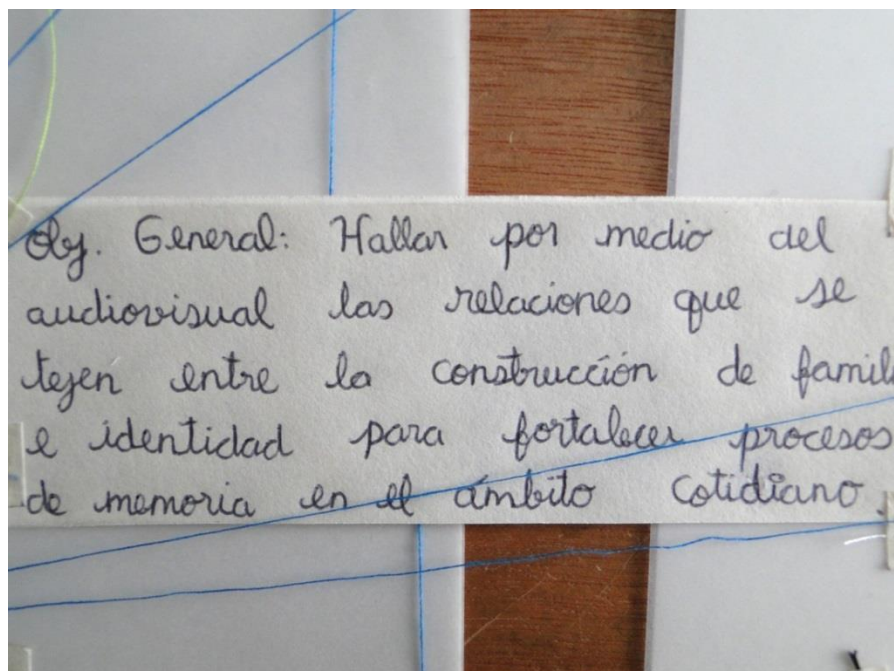 Obj. General: Hallar por medio del
audiovisual las relaciones que se
tejen entre la construcción de famili
e identidad para fortalecer procesos
de memoria en el ámbito cotidiano.